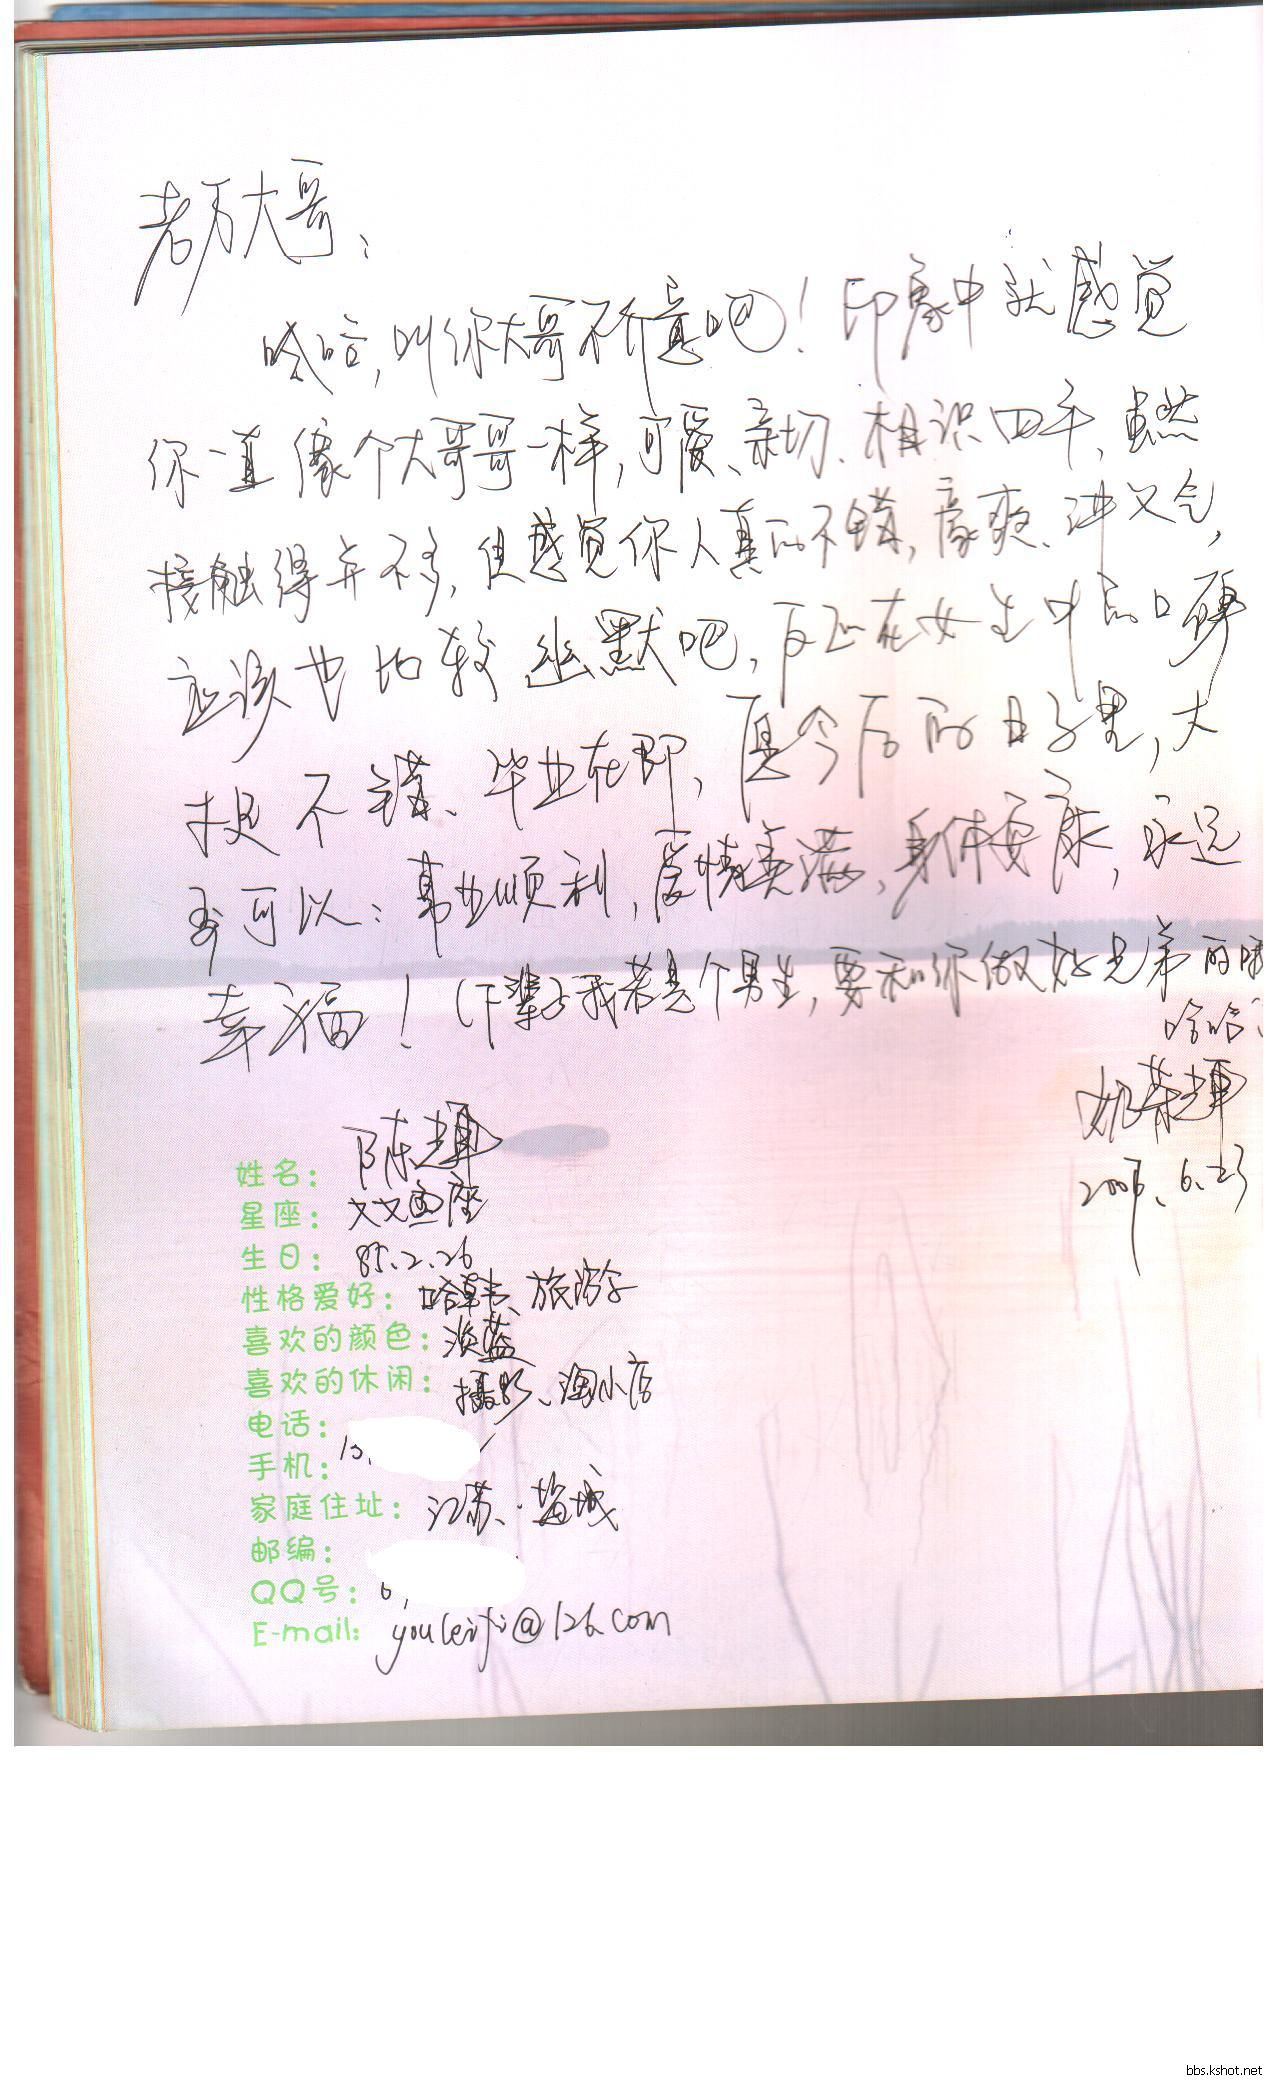 老万大哥：
哈哈，叫你大哥不介意吧！印象中就感觉
你一直像个大哥哥一样，可爱、亲切、相识四年、虽然
接触得并不多，但感觉你人真的不错，豪爽、讲义气，
应该也比较幽默吧，反正在女生中的口碑
挺不错、毕业在即，愿今后的日子里，大
哥可以：事业顺利，爱情美满，身体安康，永远
幸福！（下辈子我若是个男生，要和你做好兄弟的哦
哈哈
2007、6、23
姓名：陈辉
星座：双鱼座
生日：85.2.26
性格爱好：旅游
喜欢的颜色：淡蓝
喜欢的休闲：摄影、淘小店
电话：
手机：13
家庭住址：江苏·盐城
邮编：
QQ号：6
E-mail: @126.com
bbs.kshot.net